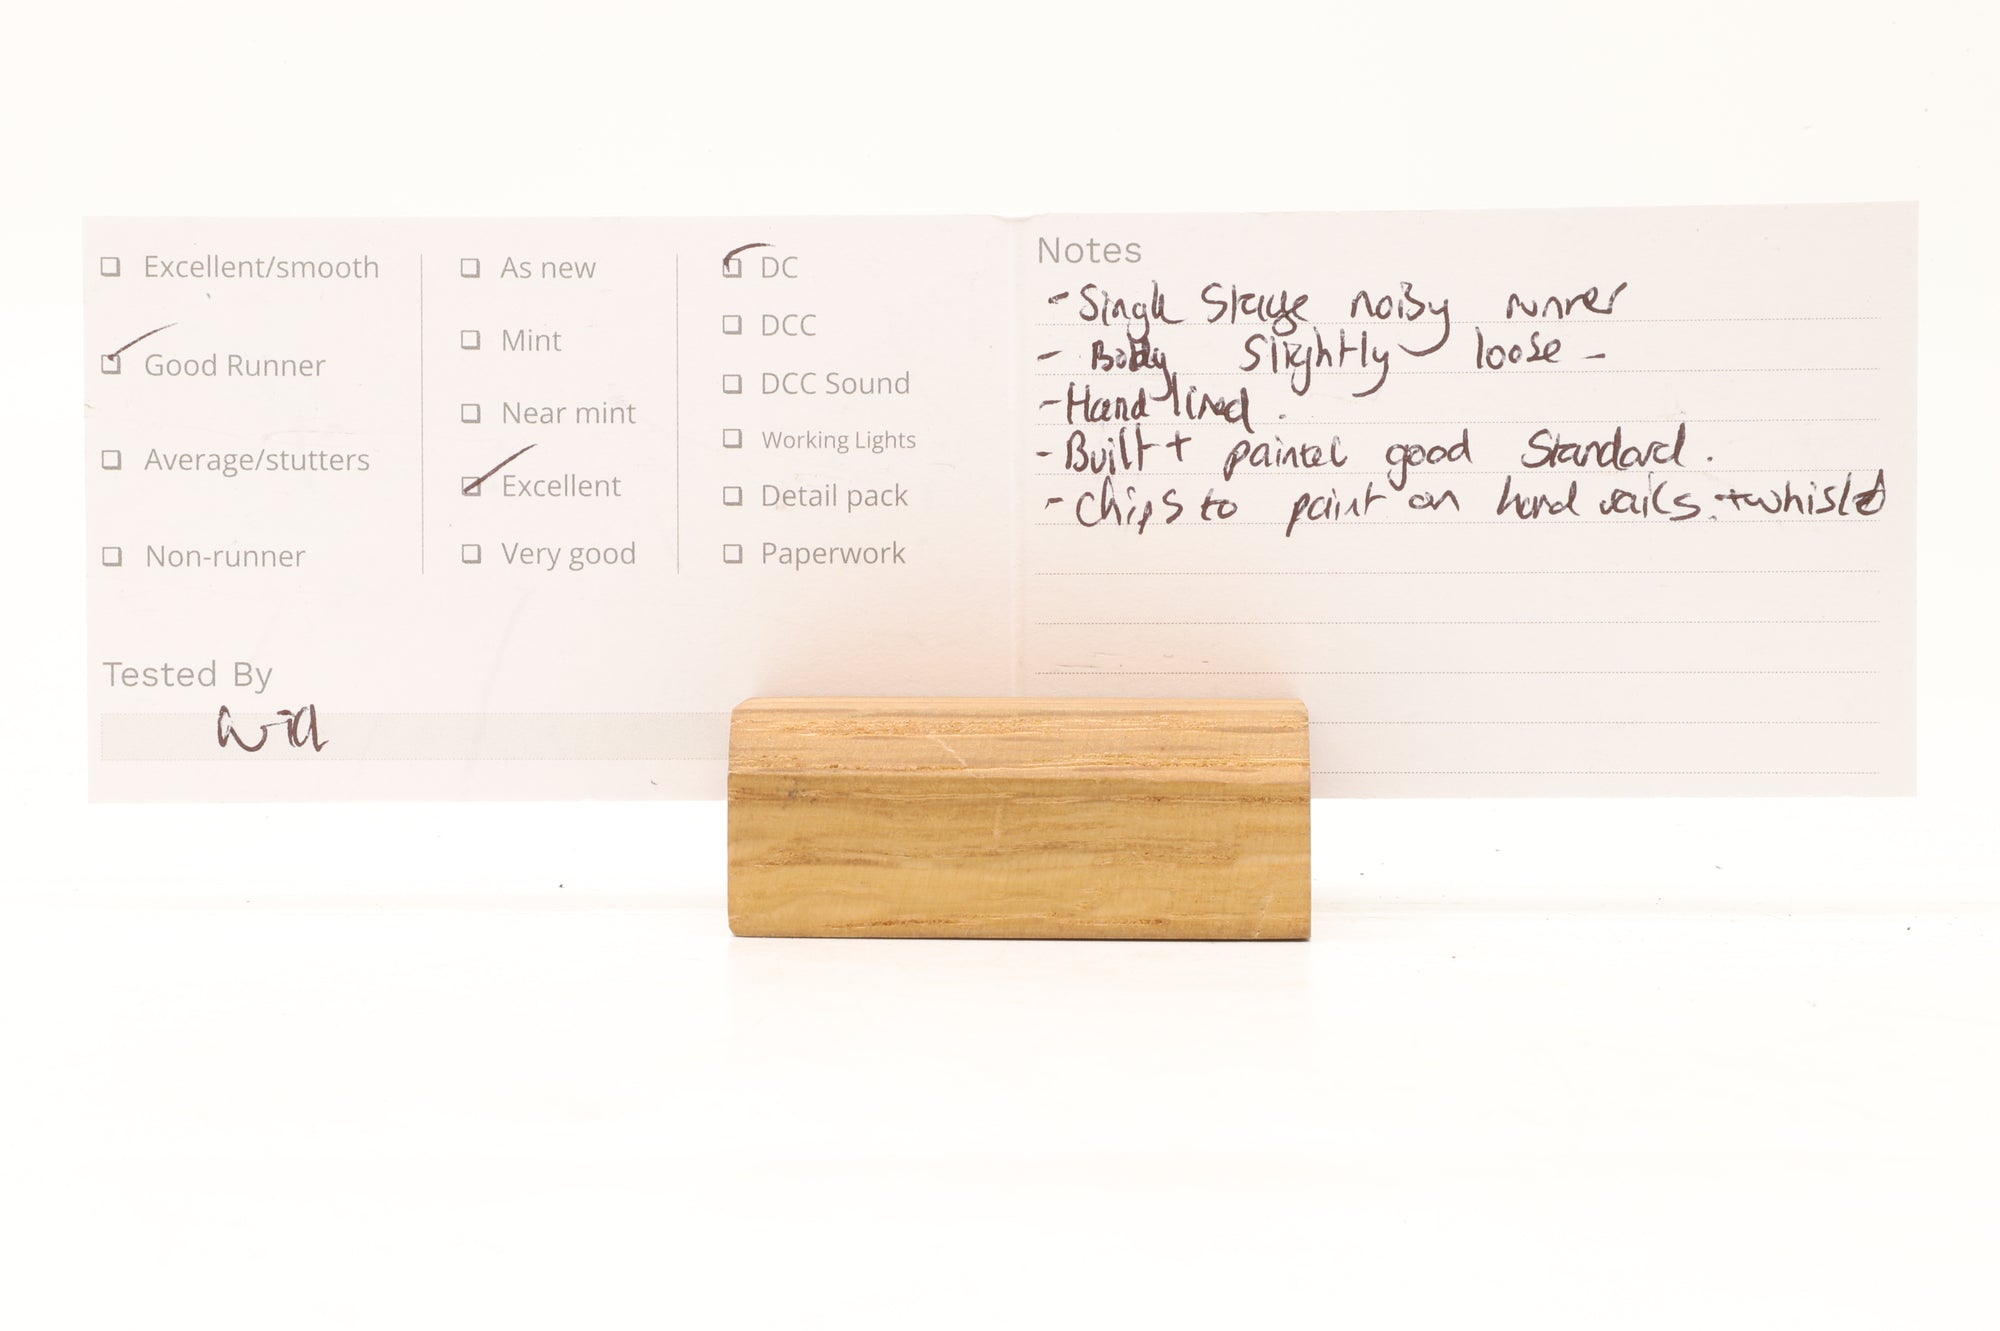 Excellent/smooth
Good Runner
Average/stutters
Non-runner
As new
Mint
Near mint
Excellent
Very good
DC
DCC
DCC Sound
Working Lights
Detail pack
Paperwork
Tested By
Will
Notes
- Single Stage noisy runner
- Body Slightly loose -
- Hand lined.
- Built + painted good Standard.
- Chips to paint on hand rails. + whistle